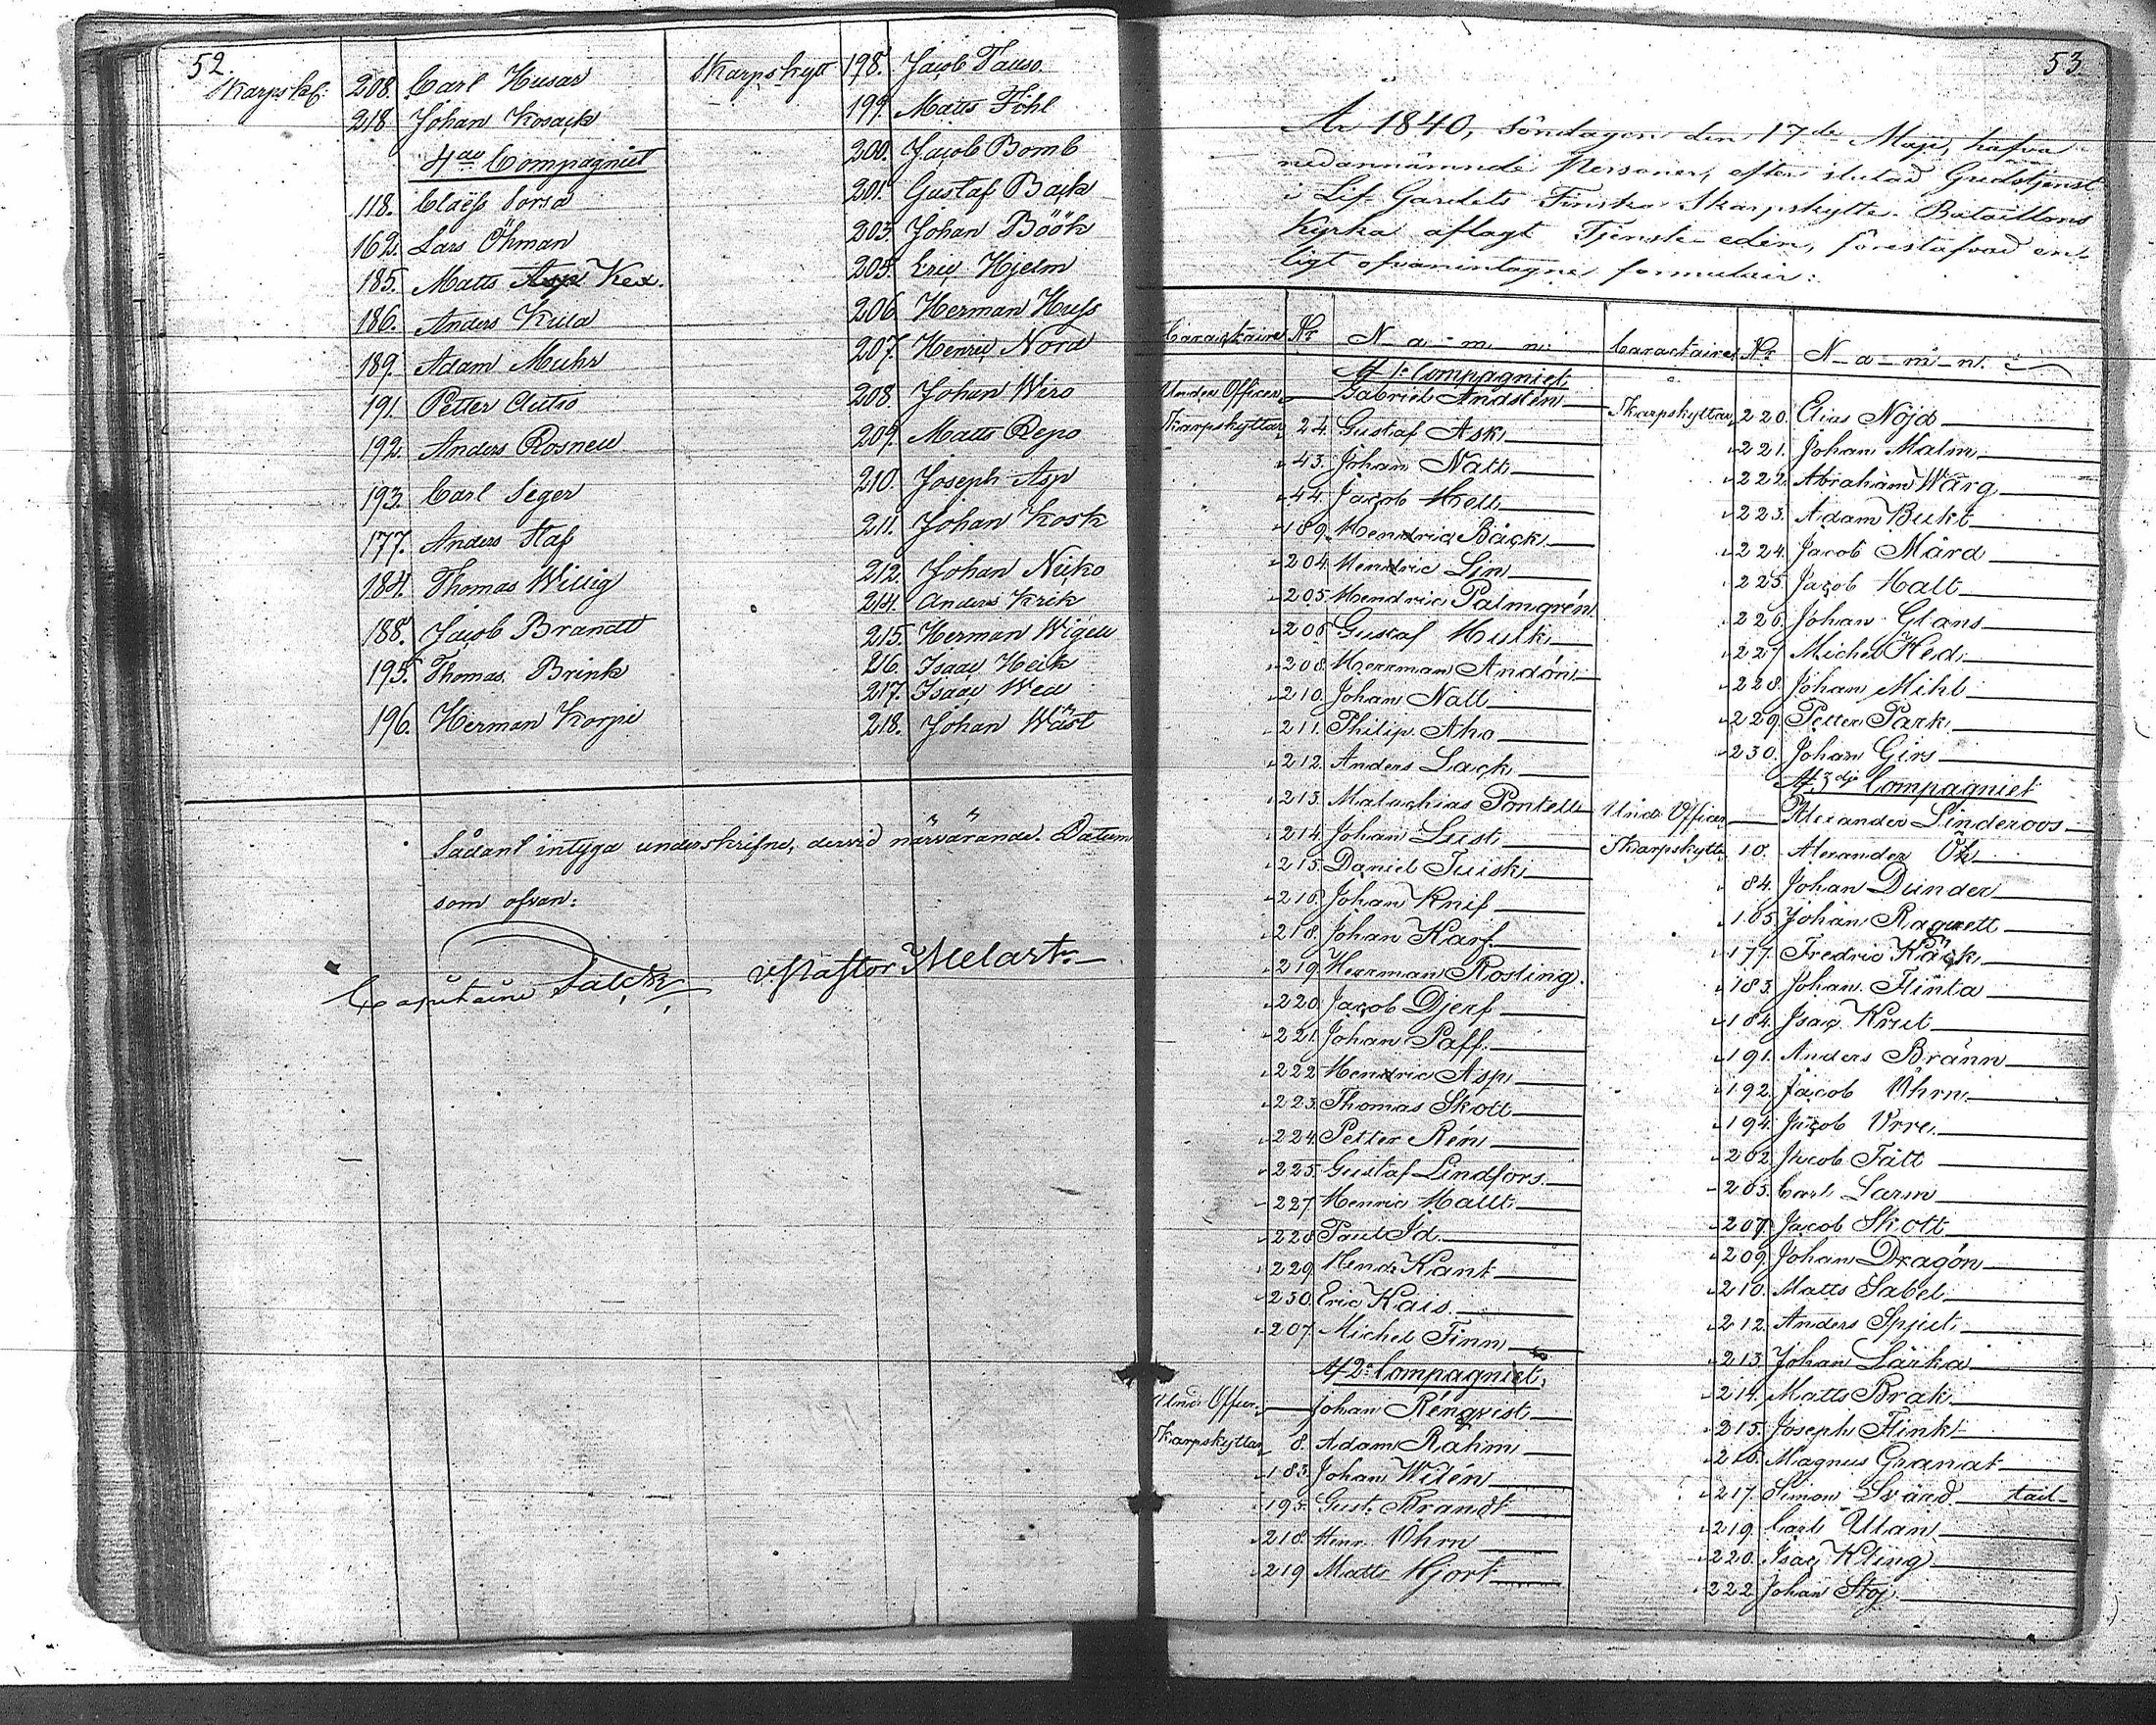 52
Skarpskt: 208. Carl Husar
218. Johan Kosack
4de Compagniet
118. Claës Sorsa
162. Lars Öhman
185. Matts Asp Kex.
186. Anders Krud
189. Adam Muhr
191. Petter Autio
192. Anders Rosnell
193. Carl Seger
177. Anders Staf
184. Thomas Willig
188. Jacob Brandt
195. Thomas Brink
196. Herman Korpi
Skarpskytt 198. Jacob Tauso.
199. Matts Föhl
200. Jacob Bomb
201. Gustaf Back
203. Johan Böök
205. Eric Hjelm
206 Herman Huss
207. Henric Nord
208. Johan Wiro
209. Matts Repo
210. Joseph Asp
211. Johan Kosk
212. Johan Neiko
214. Anders Krik
215. Herman Wigell
216. Isaac Heik
217. Isaac Wed
218. Johan Wäst
Sådant intyga underskrifne, dervid närvarande. Datum
som ofvan:
Capitaine Falck V. Pastor Melart.
53
År 1840, Söndagen den 17de Maji, hafva
nedannämnde Personer, efter slutad Gudstjenst
i Lif-Gardets Finska Skarpskytte-Bataillons
Kyrka aflagt Tjenste eden, förestafvad en-
ligt ofvanintagne formulair:
Caractaire Nr N-a-m-n: Caractaires Nr N-a-m-n:
Af 1a Compagniet
Under Officer Gabriel Andstén
Skarpskyttar 24. Gustaf Ask
43. Johan Natt
44. Jacob Hell
189. Hendric Bäck
204. Hendric Lin
205. Hendric Palmgrén
206. Gustaf Hulk
208. Herrman Andón
210. Johan Nall
211. Philip Aho
212. Anders Lack
213. Malachias Pontell
214. Johan Lust
215. Daniel Tuisk
216. Johan Knif
218. Johan Karf
219. Herrman Rosling.
220. Jacob Djerf
221. Johan Paff.
222 Hendric Asp
223. Thomas Skott
224. Petter Rén
225. Gustaf Lindfors.
227. Henric Hallt
228 Paul Id
229 Hend: Kant
230. Eric Kais.
207. Michel Finn
Af 2a Compagniet
Und: Officer Johan Rénqvist
Skarpskyttar 8. Adam Rahm
183. Johan Wilén
195. Gust. Brandt
218. Henr. Öhrn
219 Matts Hjort
Skarpskyttar 220. Elias Nöjd
221. Johan Malm
222. Abraham Wärg
223. Adam Bukt
224. Jacob Mård
225. Jacob Halt
226. Johan Glans
227 Michel Hed
228. Johan Mihl
229. Petter Park
230. Johan Girs
Af 3dje Compagniet
Und: Officer Alexander Linderoos
Skarpskytt. 10. Alexander Ök
84. Johan Dunder
105. Johan Raqvett
177. Fredric Käck
183. Johan Flinta
184. Isac Krut
191. Anders Bränn
192. Jacob Öhrn
194. Jacob Orre
202. Jacob Tätt
205. Carl Larm
207. Jacob Skott
209. Johan Dragón
210. Matts Sabel
212. Anders Spjut
213. Johan Lärka
214. Matts Brak
215. Joseph Flink
216. Magnus Granat
217. Simon Svärd tail-
219. Carl Ulan
220. Isac Kling
222. Johan Stoj